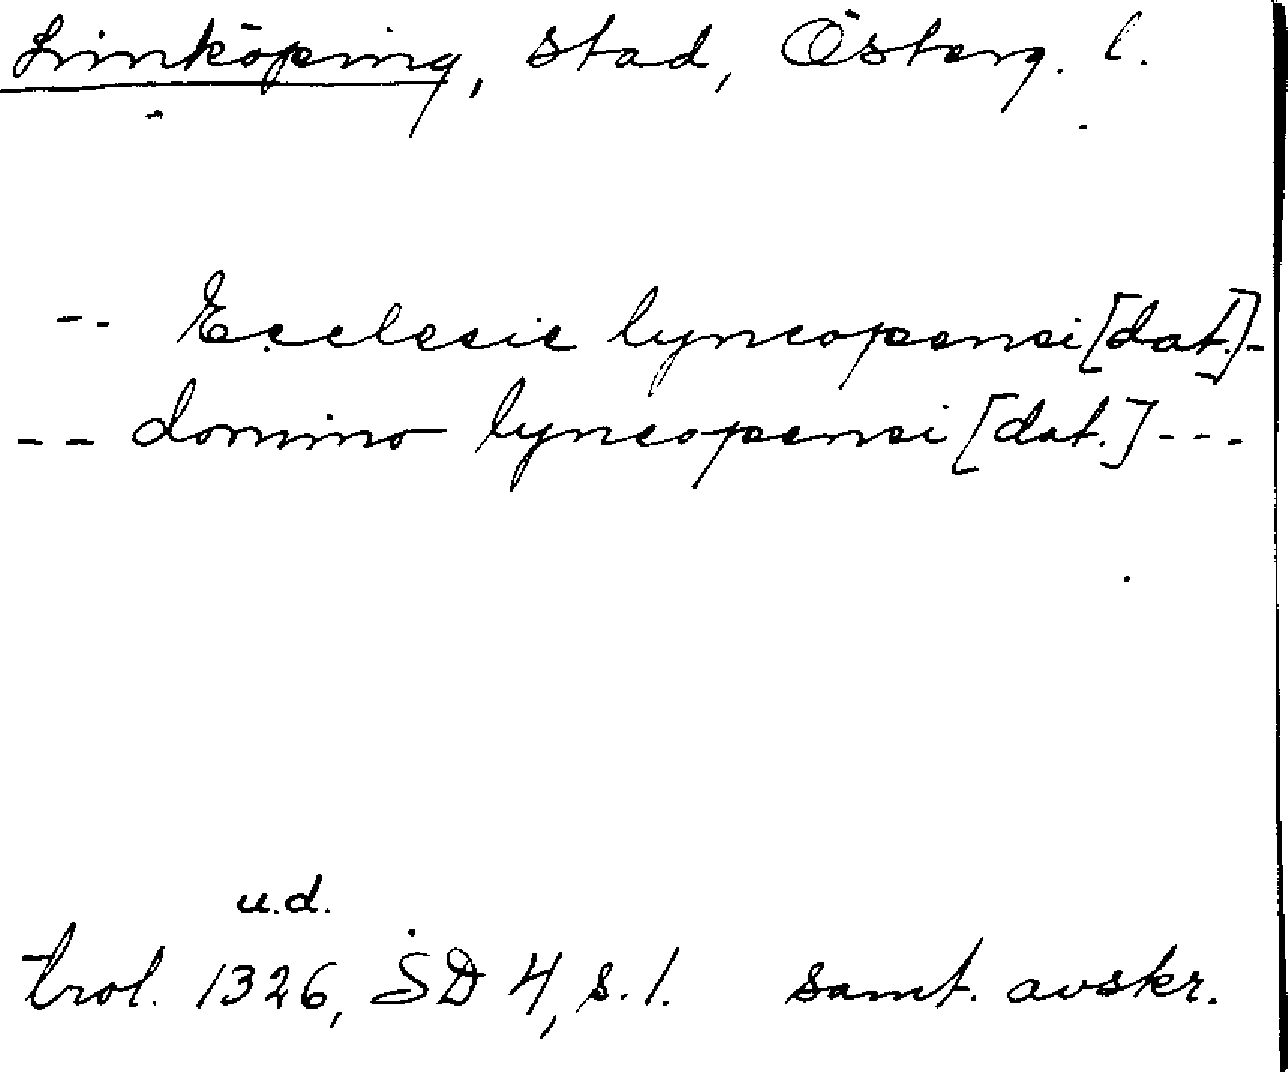 Linköping, stad, Österg. l.
-- Ecclesie lyncopensi [dat.]-
-- domino lyncopensi [dat.] ---
u.d.
trol. 1326, SD 4, s. 1. samt. avskr.